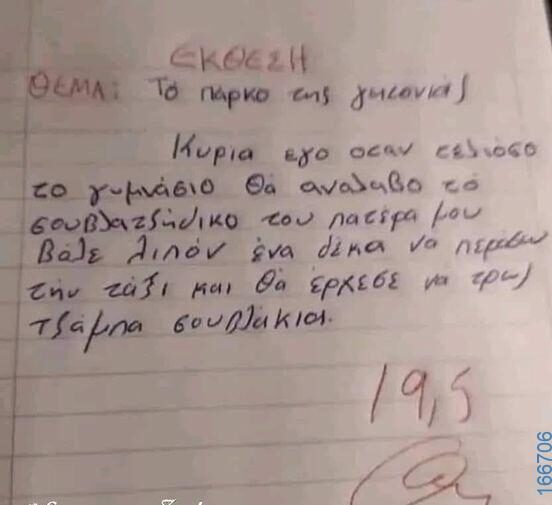 ΕΚΘΕΣΗ
ΘΕΜΑ: Τό πάρκο της γητονιάς
Κυρια εγο οσαν τελιόσο
το γυμνάσιο θά αναλαβο τό
σουβλατζήδικο του πατέρα μου
Βάλε λιπόν ένα δέκα να περάσω
την τάξι και θά έρχεσε να τρως
τζάμπα σουβλάκια.
19,5
166706